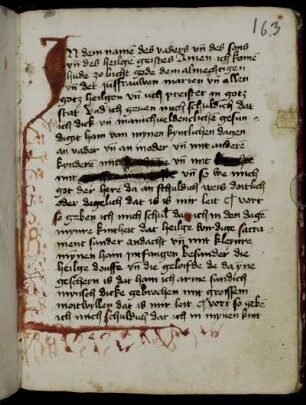 163
In dem namē des vaders vñ des sons
vñ des heilgē geistes Amen ich komē
hude zo bicht gode dem almechtigen
vñ der juffrauwen marien vñ allen
gotz heilgen vñ uch preister in gotz
stat Vnd ich geuen mich schuldich dat
ich dick vñ manichueldenclichē gesun-
diget hain van mynen kyntlichen dagen
an vader vñ an moder vñ mit andere
kyndere mit vñ mit
mit vñ so we mich
got der here da an schuldich weis doitlich
oder degelich dat is is mir leit Vort
so geben ich mich schul da ich in den dage
mynre kintheit dat heilge wirdige sacra
ment sunder andacht vñ mit kleynre
mynen hain intfangen besunder die
heilge douffe vñ die geloifde de da yne
geschein is dat hain ich arme sundich
mynsch dicke gebrochen mit grossem
moitwyllen dat is mir leit Vort so gebe
ich mich schuldich dat ich in mynen kint